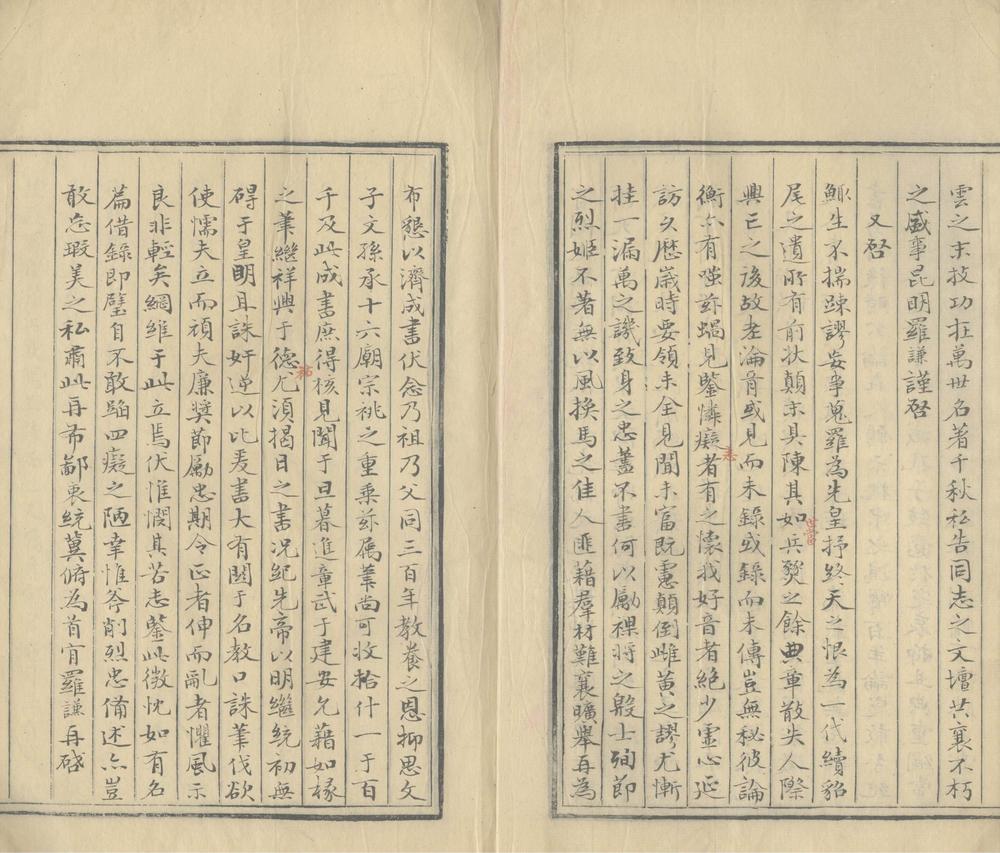 雲之末技功在萬世名著千秋私告同志之文壇共襄不朽
之盛事昆明羅謙謹啓
又啓
鯫生不揣踈謬妄爭蒐羅為先皇抒終天之恨為一代續貂
尾之遺所有前状顛末具陳其如兵燹之餘典章散失人際
當
興亡之後故老淪胥或見而未錄或錄而未傳豈無秘彼論
衡亦有嗤茲蝸見鑒憐癡者有之懷我好音者絶少霊心延
志
訪久歷歲時要領未全見聞未富既慮顛倒雌黃之謬尤慚
挂一漏萬之譏致身之忠藎不書何以勵裸將之殷士殉節
之烈姬不著無以風換馬之佳人匪藉羣材難襄曠舉再為
布懇以濟成書伏念乃祖乃父同三百年教養之恩抑思文
子文孫承十六廟宗祧之重乘茲属藁尚可收拾什一于百
千及此成書庶得核見聞于旦暮進章武于建安允藉如椽
之筆繼祥興于德尤湏揭日之書况紀先帝以明繼統初無
祐
碍于皇明且誅奸逆以比麦書大有関于名教口誅筆伐欲
使懦夫立而頑夫廉奬節勵忠期令正者伸而亂者懼風示
良非輕矣綱維于此立焉伏惟憫其苦志鍳此微忱如有名
篇借錄即璧自不敢蹈四癡之陋幸惟斧削烈忠備述亦豈
敢忘瑕美之私肅此再布鄙衷統冀俯為首肎羅謙再啓